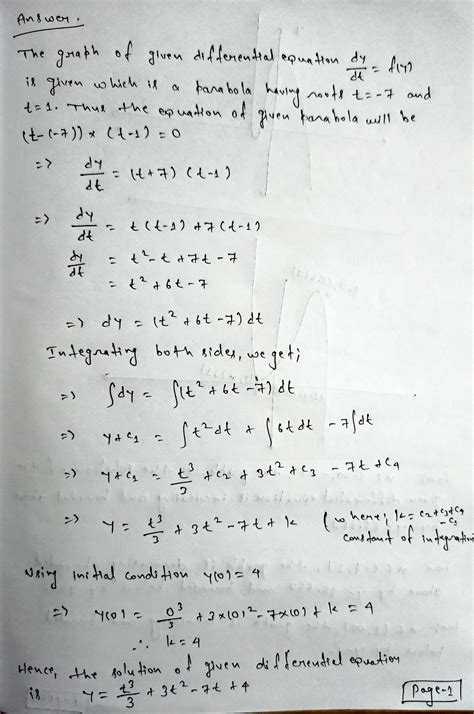 Answer.
The graph of given differential equation dy/dt = f(y)
is given which is a parabola having roots t=-7 and
t=1. Thus the equation of given parabola will be
(t-(-7)) × (t-1) = 0
=> dy/dt = (t+7) (t-1)
=> dy/dt = t(t-1) +7(t-1)
dy/dt = t²-t +7t-7
= t²+6t-7
=> dy = (t²+6t-7)dt
Integrating both sides, we get;
=> ∫dy = ∫(t²+6t-7) dt
=> y+c₁ = ∫t²dt + ∫6tdt -7∫dt
=> y+c₁ = t³/3 +c₂ + 3t²+c₃ - 7t +c₄
=> y = t³/3 + 3t²-7t+k (where; k= c₂+c₃+c₄-c₁
constant of integration
Using initial condition y(0)=4
=> y(0) = 0³/3 +3×(0)²-7×(0)+k = 4
∴ k=4
Hence, the solution of given differential equation
is y = t³/3 +3t²-7t+4
Page-1